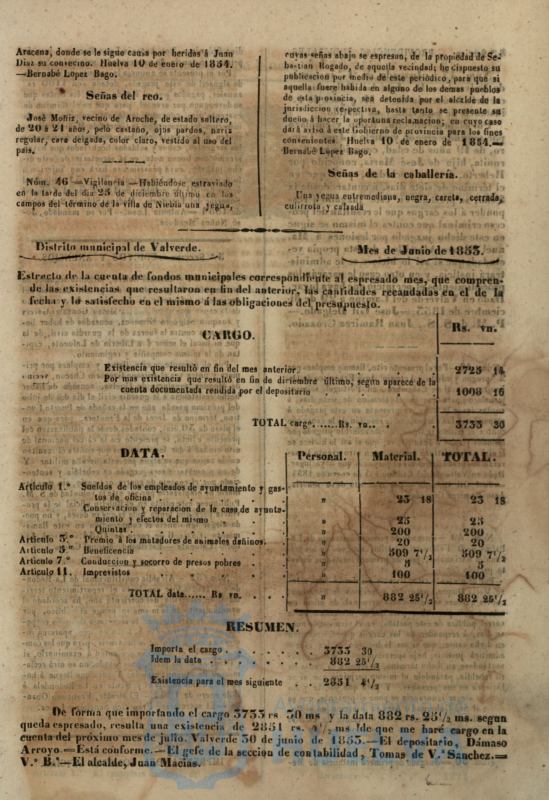 Aracena, donde se le sigue causa por heridas á Juan
Diaz su convecino. Huelva 10 de enero de 1854.
—Bernabé Lopez Bago.
Señas del reo.
José Moñiz, vecino de Aroche, de estado soltero,
de 20 á 21 años, pelo castaño, ojos pardos, nariz
regular, cara delgada, color claro, vestido al uso del
pais.
Núm. 46 —Vigilancia —Habiéndose estraviado
en la tarde del dia 25 de diciembre último en los
campos del término de la villa de Niebla una yegua,
cuyas señas abajo se espresan, de la propiedad de Se-
bastian Rogado, de aquella vecindad; he dispuesto su
publicacion por medio de este periódico, para que si
aquella fuere habida en alguno de los demas pueblos
de esta provincia, sea detenida por el alcalde de la
jurisdiccion respectiva, hasta tanto se presente su
dueño á hacer la oportuna reclamacion; en cuyo caso
dará aviso á este Gobierno de provincia para los fines
convenientes Huelva 10 de enero de 1854.—
Bernabé Lopez Bago.
Señas de la caballería.
Una yegua entremediana, negra, careta, cerrada,
culirrota y calzada
Distrito municipal de Valverde.
Mes de Junio de 1853.
Estracto de la cuenta de fondos municipales correspondiente al espresado mes, que compren-
de las existencias que resultaron en fin del anterior, las cantidades recaudadas en el de la
fecha y lo satisfecho en el mismo á las obligaciones del presupuesto.
CARGO.
Rs. vn.
Existencia que resultó en fin del mes anterior. 2725 14
Por mas existencia que resultó en fin de diciembre último, segun aparece de la
cuenta documentada rendida por el depositario 1008 16
TOTAL cargo......Rs. vn. 3733 30
DATA.
Personal. Material. TOTAL.
Articulo 1.º Sueldos de los empleados de ayuntamiento y gas-
tos de oficina " 23 18 23 18
Conservacion y reparacion de la casa de ayunta-
miento y efectos del mismo " 25 25
Quintas " 200 200
Articulo 3.º Premio á los matadores de animales dañinos. " 20 20
Articulo 5.º Beneficencia " 509 7 1/2 509 7 1/2
Articulo 7.º Conduccion y socorro de presos pobres " 5 5
Articulo 11. Imprevistos " 100 100
TOTAL data...... Rs vn. " 882 25 1/2 882 25 1/2
RESUMEN.
Importa el cargo 3733 30
Idem la data 882 25 1/2
Existencia para el mes siguiente 2851 4 1/2
De forma que importando el cargo 3733 rs 30 ms y la data 882 rs. 25 1/2 ms. segun
queda espresado, resulta una existencia de 2851 rs. 4 1/2 ms. de que me haré cargo en la
cuenta del próximo mes de julio. Valverde 30 de junio de 1853.—El depositario, Dámaso
Arroyo.=Está conforme.—El gefe de la seccion de contabilidad, Tomas de V.ª Sanchez.=
V.º B.º—El alcalde, Juan Macias.